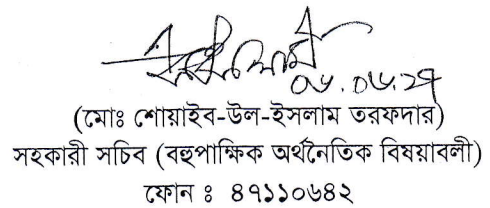 (মোঃ শোয়াইব-উল-ইসলাম তরফদার)
সহকারী সচিব (বহুপাক্ষিক অর্থনৈতিক বিষয়াবলী)
ফোন ঃ ৪৭১১০৬৪২